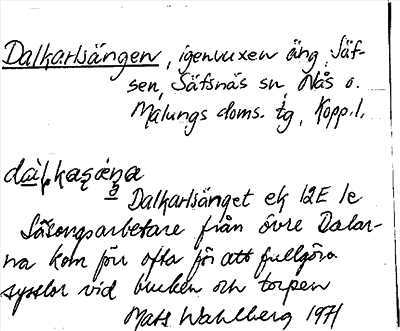 Dalkarlsängen, igenvuxen äng, Säf-
sen, Säfsnäs sn, Nås o.
Malungs doms. tg, Kopp.l.
Dalkarlsänget ek 12E 1e
Säsongsarbetare från övre Dalar-
na kom förr ofta för att fullgöra
sysslor vid bruken och torpen
Mats Wahlberg 1971